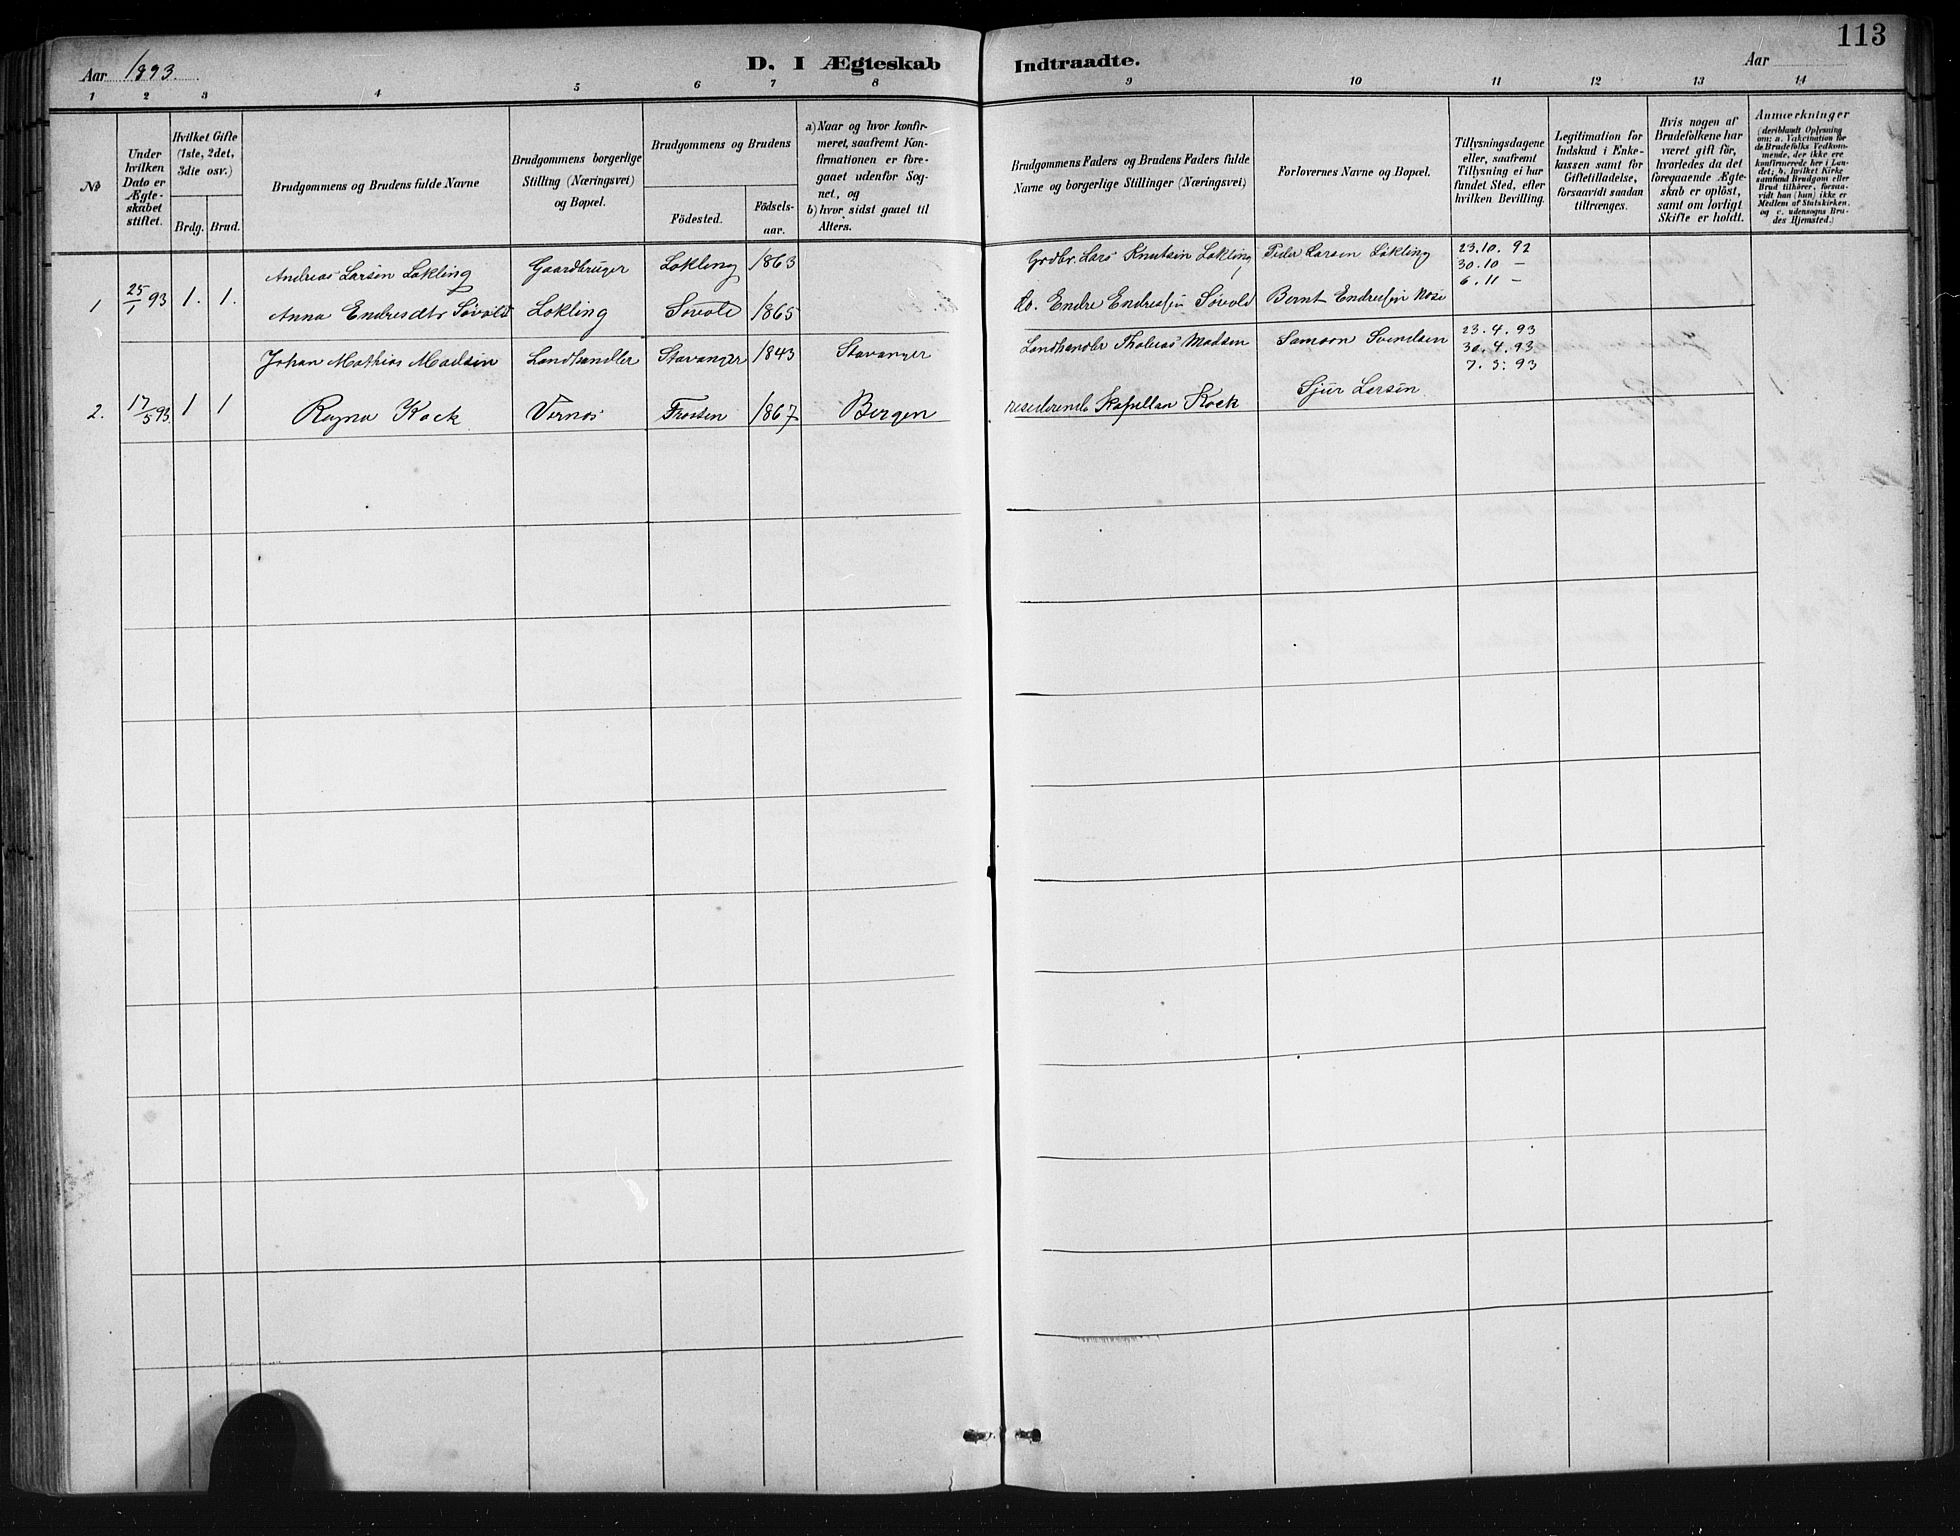 113
Aar 1893
D. I Ægteskab Indtraadte.
Aar
1 2 3 4 5 6 7 8 9 10 11 12 13 14
No
Under hvilken Dato er Ægteskabet stiftet.
Hvilket Gifte (1ste, 2det, 3die osv.)
Brdg. Brud.
Brudgommens og Brudens fulde Navne
Brudgommens borgerlige Stilling (Næringsvei) og Bopæl.
Brudgommens og Brudens
Födested.
Födselsaar.
a) Naar og hvor konfirmeret, saafremt Konfirmationen er foregaaet udenfor Sognet, og
b) hvor sidst gaaet til Alters.
Brudgommens Faders og Brudens Faders fulde Navne og borgerlige Stillinger (Næringsvei)
Forlovernes Navne og Bopæl.
Tillysningsdagene eller, saafremt Tillysning ei har fundet Sted, efter hvilken Bevilling.
Legitimation for Indskud i Enkekassen samt for Giftetilladelse, forsaavidt saadan tiltrænges.
Hvis nogen af Brudefolkene har været gift för, hvorledes da det foregaaende Ægteskab er oplöst, samt om lovligt Skifte er holdt.
Anmærkninger (deriblandt Oplysning om: a. Vakcination for de Brudefolks Vedkommende, der ikke ere konfirmerede her i Landet; b. hvilket Kirkesamfund Brudgom eller Brud tilhörer, forsaavidt han (hun) ikke er Medlem af Statskirken, og c. udensogns Brudes Hjemsted.)
1 25/1 93 1. 1. Andreas Larsen Løkling Gaardbruger Løkling 1863 Grdbr. Lars Knutsen Løkling Peder Larsen Løkling 23.10.92
30.10 –
6.11 –
Anna Endresdtr Søvold Løkling Søvold 1865 do. Endre Endresen Søvold Bernt Endresen Nose
Johan Mathias Madsen Landhandler Stavanger 1843 Stavanger Landhandler Tholeas Madsen Samson Svendsen 23.4.93
30.4.93
7.5.93
2. 17/5 93 1 1 Ragna Kock Vernøs Frosten 1867 Bergen residerende Kapellan Kock Sjur Larsen